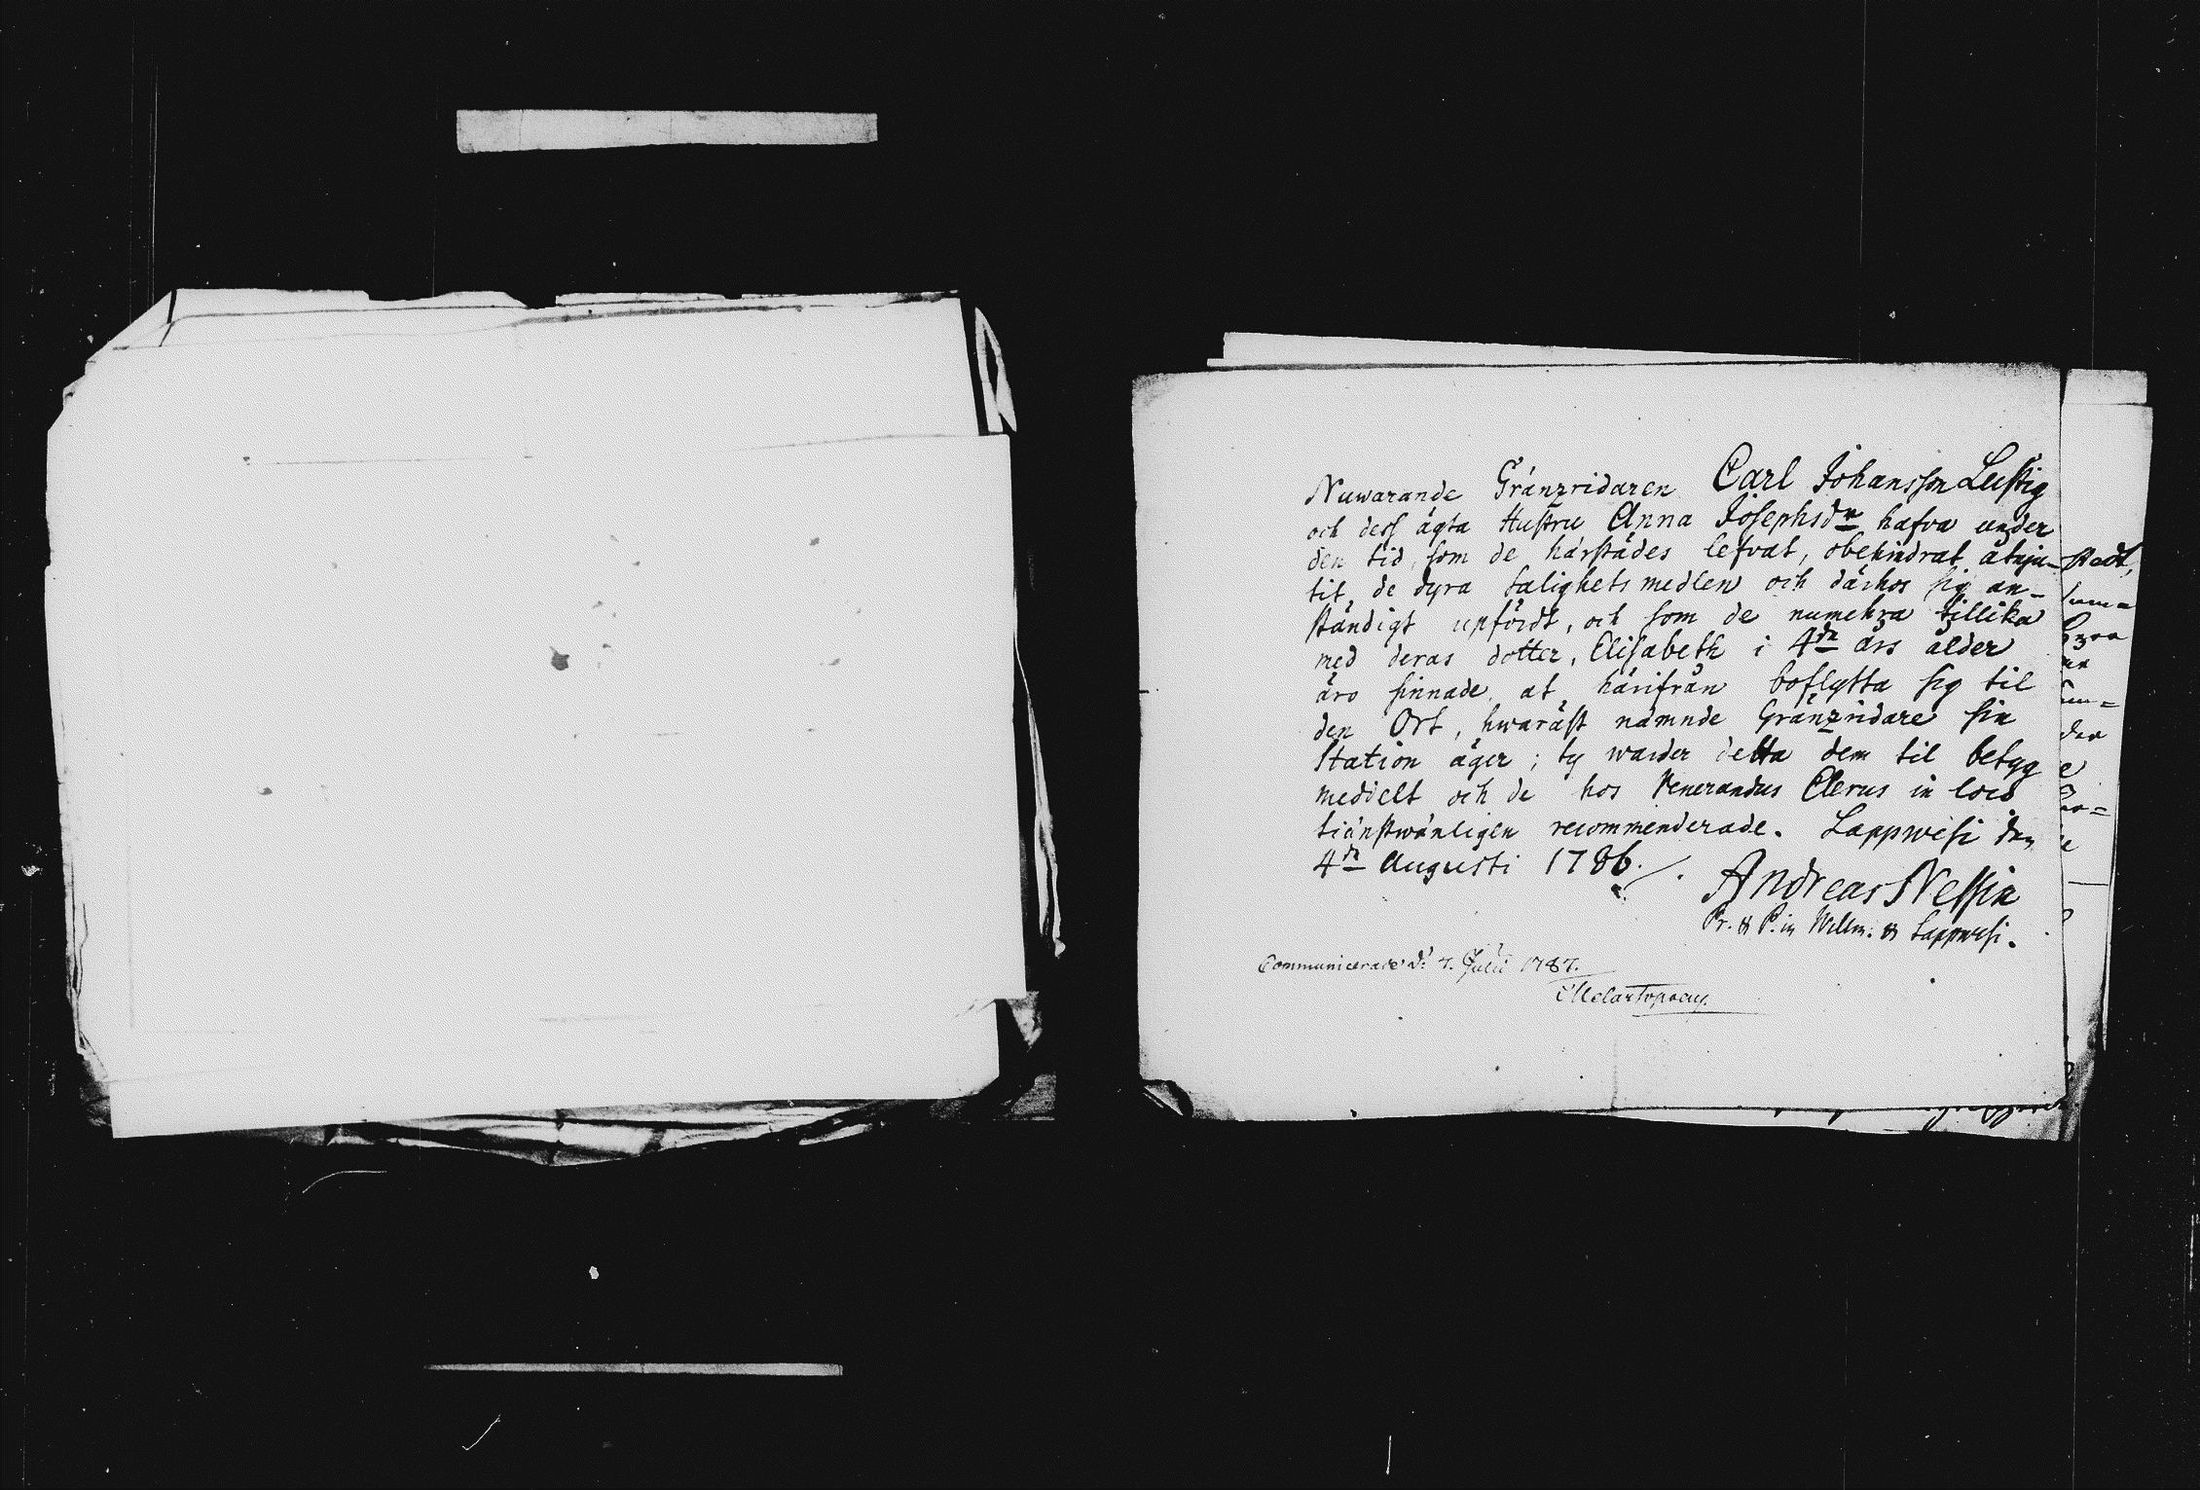 Nuwarande Gränzridaren Carl Johansson Lustig
och dess ägta Hustru Anna Josephsdr hafva under
den tid, som de härstädes lefvat, obehindrat åtnju-
tit de dyra salighets medlen och därhos sig an-
ständigt upfördt, och som de numehra tillika
med deras dotter, Elisabeth i 4de års ålder
äro sinnade at härifrån boflytta sig til
den Ort, hwaräst nämnde Gränzridare sin
Station äger; ty warder detta dem til betyg
meddelt och de hos Venerandus Clerus in loco
tiänstwänligen recommenderade. Lappwesi den
4de Augusti 1786.
Andreas Nessin
Pr. & P. in Willm. & Lappwesi.
Communicerade d: 7. Julii 1787.